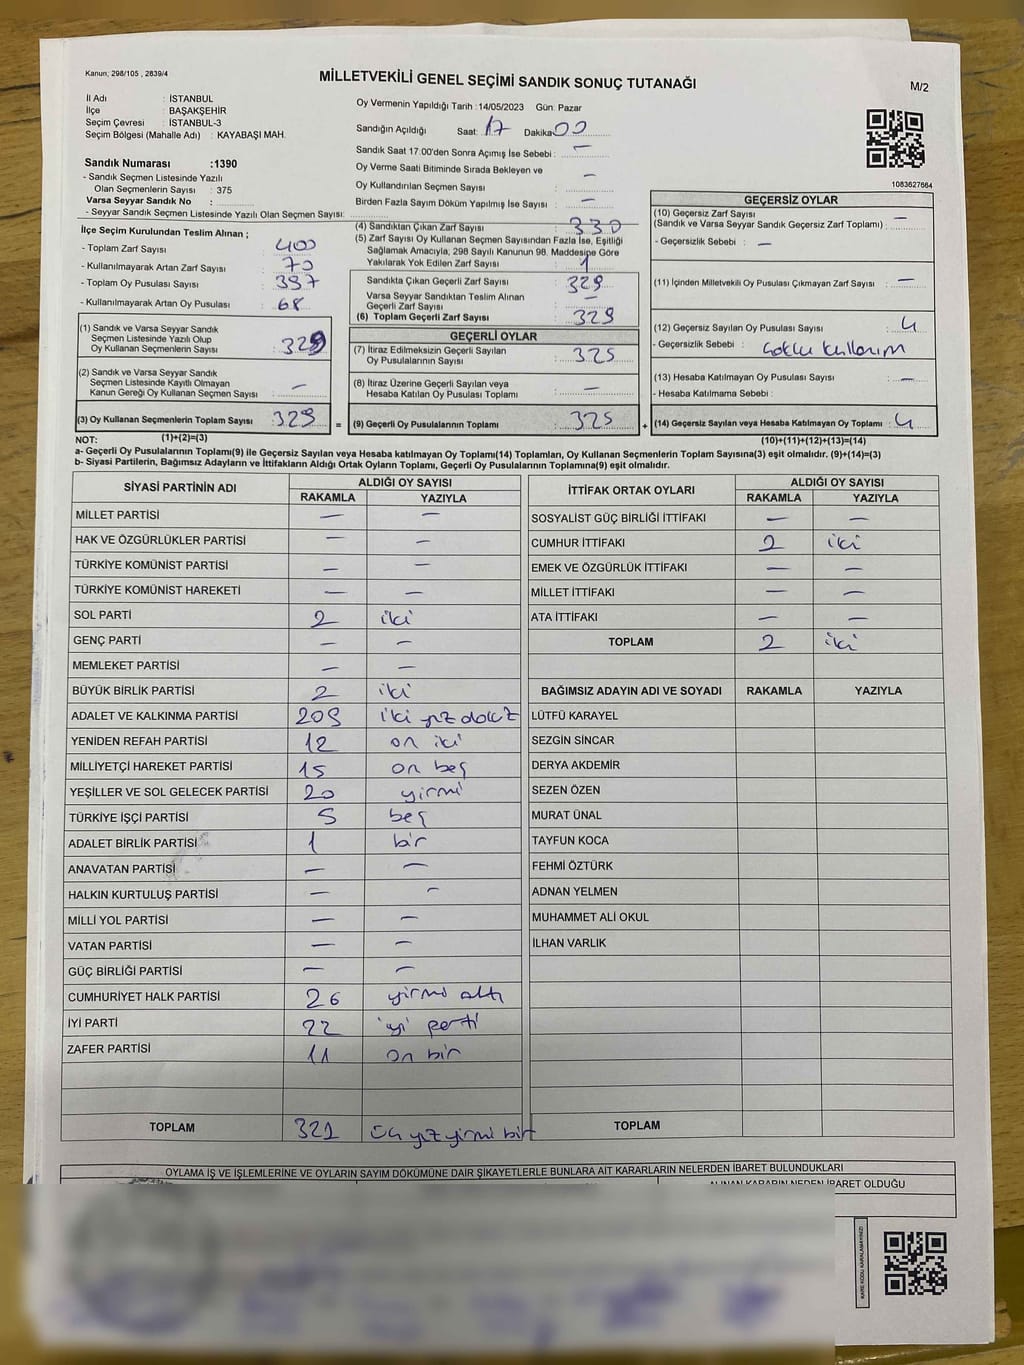 Kanun; 298/105 , 2839/4
MİLLETVEKİLİ GENEL SEÇİMİ SANDIK SONUÇ TUTANAĞI
M/2
İl Adı : İSTANBUL
İlçe : BAŞAKŞEHİR
Seçim Çevresi : İSTANBUL-3
Seçim Bölgesi (Mahalle Adı) : KAYABAŞI MAH.
Sandık Numarası :1390
- Sandık Seçmen Listesinde Yazılı
Olan Seçmenlerin Sayısı : 375
Varsa Seyyar Sandık No :
- Seyyar Sandık Seçmen Listesinde Yazılı Olan Seçmen Sayısı:
Oy Vermenin Yapıldığı Tarih :14/05/2023 Gün: Pazar
Sandığın Açıldığı Saat: 17 Dakika: 00
Sandık Saat 17:00'den Sonra Açımış İse Sebebi : —
Oy Verme Saati Bitiminde Sırada Bekleyen ve
Oy Kullandırılan Seçmen Sayısı : —
Birden Fazla Sayım Döküm Yapılmış İse Sayısı : —
1083627664
İlçe Seçim Kurulundan Teslim Alınan ;
- Toplam Zarf Sayısı : 400
- Kullanılmayarak Artan Zarf Sayısı : 70
- Toplam Oy Pusulası Sayısı : 397
- Kullanılmayarak Artan Oy Pusulası : 68
(1) Sandık ve Varsa Seyyar Sandık
Seçmen Listesinde Yazılı Olup
Oy Kullanan Seçmenlerin Sayısı : 329
(2) Sandık ve Varsa Seyyar Sandık
Seçmen Listesinde Kayıtlı Olmayan
Kanun Gereği Oy Kullanan Seçmen Sayısı : —
(3) Oy Kullanan Seçmenlerin Toplam Sayısı : 329
(1)+(2)=(3)
(4) Sandıktan Çıkan Zarf Sayısı : 330
(5) Zarf Sayısı Oy Kullanan Seçmen Sayısından Fazla İse, Eşitliği
Sağlamak Amacıyla, 298 Sayılı Kanunun 98. Maddesine Göre
Yakılarak Yok Edilen Zarf Sayısı : 1
Sandıkta Çıkan Geçerli Zarf Sayısı : 329
Varsa Seyyar Sandıktan Teslim Alınan
Geçerli Zarf Sayısı : —
(6) Toplam Geçerli Zarf Sayısı : 329
GEÇERLİ OYLAR
(7) İtiraz Edilmeksizin Geçerli Sayılan
Oy Pusulalarının Sayısı : 325
(8) İtiraz Üzerine Geçerli Sayılan veya
Hesaba Katılan Oy Pusulası Toplamı : —
= (9) Geçerli Oy Pusulalarının Toplamı : 325
GEÇERSİZ OYLAR
(10) Geçersiz Zarf Sayısı —
(Sandık ve Varsa Seyyar Sandık Geçersiz Zarf Toplamı) :
- Geçersizlik Sebebi : —
(11) İçinden Milletvekili Oy Pusulası Çıkmayan Zarf Sayısı : —
(12) Geçersiz Sayılan Oy Pusulası Sayısı : 4
- Geçersizlik Sebebi : Çoklu kullanım
(13) Hesaba Katılmayan Oy Pusulası Sayısı : —
- Hesaba Katılmama Sebebi :
+ (14) Geçersiz Sayılan veya Hesaba Katılmayan Oy Toplamı : 4
(10)+(11)+(12)+(13)=(14)
NOT:
a- Geçerli Oy Pusulalarının Toplamı(9) ile Geçersiz Sayılan veya Hesaba katılmayan Oy Toplamı(14) Toplamları, Oy Kullanan Seçmenlerin Toplam Sayısına(3) eşit olmalıdır. (9)+(14)=(3)
b- Siyasi Partilerin, Bağımsız Adayların ve İttifakların Aldığı Ortak Oyların Toplamı, Geçerli Oy Pusulalarının Toplamına(9) eşit olmalıdır.
SİYASİ PARTİNİN ADI ALDIĞI OY SAYISI
RAKAMLA YAZIYLA
MİLLET PARTİSİ — —
HAK VE ÖZGÜRLÜKLER PARTİSİ — —
TÜRKİYE KOMÜNİST PARTİSİ — —
TÜRKİYE KOMÜNİST HAREKETİ — —
SOL PARTİ 2 iki
GENÇ PARTİ — —
MEMLEKET PARTİSİ — —
BÜYÜK BİRLİK PARTİSİ 2 iki
ADALET VE KALKINMA PARTİSİ 209 iki yüz dokuz
YENİDEN REFAH PARTİSİ 12 on iki
MİLLİYETÇİ HAREKET PARTİSİ 15 on beş
YEŞİLLER VE SOL GELECEK PARTİSİ 20 yirmi
TÜRKİYE İŞÇİ PARTİSİ 5 beş
ADALET BİRLİK PARTİSİ 1 bir
ANAVATAN PARTİSİ — —
HALKIN KURTULUŞ PARTİSİ — —
MİLLİ YOL PARTİSİ — —
VATAN PARTİSİ — —
GÜÇ BİRLİĞİ PARTİSİ — —
CUMHURİYET HALK PARTİSİ 26 yirmi altı
İYİ PARTİ 22 iyi parti
ZAFER PARTİSİ 11 on bir
TOPLAM 321 üç yüz yirmi bir
İTTİFAK ORTAK OYLARI ALDIĞI OY SAYISI
RAKAMLA YAZIYLA
SOSYALİST GÜÇ BİRLİĞİ İTTİFAKI — —
CUMHUR İTTİFAKI 2 iki
EMEK VE ÖZGÜRLÜK İTTİFAKI — —
MİLLET İTTİFAKI — —
ATA İTTİFAKI — —
TOPLAM 2 iki
BAĞIMSIZ ADAYIN ADI VE SOYADI RAKAMLA YAZIYLA
LÜTFÜ KARAYEL
SEZGİN SİNCAR
DERYA AKDEMİR
SEZEN ÖZEN
MURAT ÜNAL
TAYFUN KOCA
FEHMİ ÖZTÜRK
ADNAN YELMEN
MUHAMMET ALİ OKUL
İLHAN VARLIK
TOPLAM
OYLAMA İŞ VE İŞLEMLERİNE VE OYLARIN SAYIM DÖKÜMÜNE DAİR ŞİKAYETLERLE BUNLARA AİT KARARLARIN NELERDEN İBARET BULUNDUKLARI
ALINAN KARARIN NEDEN İBARET OLDUĞU
KARE KODU KARALAMAYINIZ!